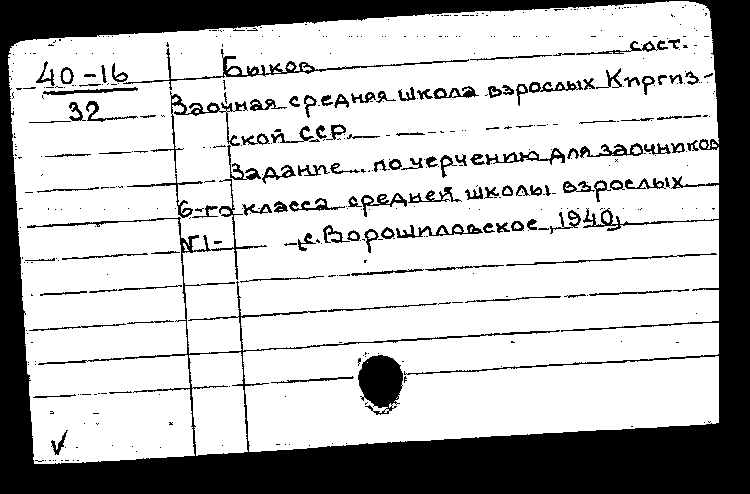 40-16
32
Быков сост.
Заочная средняя школа взрослых Киргиз-
ской ССР.
Задание... по черчению для заочников
6-го класса средней школы взрослых
№1- с. Ворошиловское, 1940.